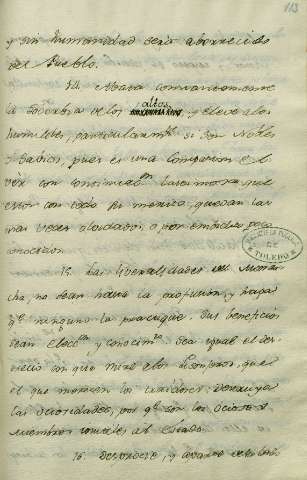 113
y sin humanidad será aborrecido
del Pueblo.
14. Abata constantemente
la soberbia de los altos, y eleve a los
humildes, particularmte si son Nobles
y Sabios, pues es una compasion el
ver con continua lastimosa, que
estos con todo su merito, quedan las
mas veces olvidados, o por embidia poco
conocidos.
15. Las liveralidades del Monar-
cha, no sean hasta la profusion, y haga
qe ninguno la practique. Sus beneficios
sean con elecon y conocimto. Sea igual el des-
precio con que mire a los Lisonjeros, que
el que merecen los traidores. Destruya
las ociosidades, por qe son los ociosos
miembros inutiles al Estado.
16 Desprecie, y
BIBLIOTECA PUBLICA
DE
TOLEDO